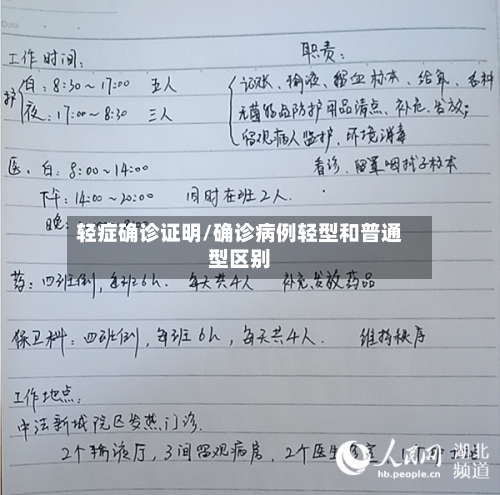 工作时间:
职责:
护 白: 8:30~17:00 五人
夜: 17:00~8:30 三人
记账、输液、留血标本、给氧、各种
无菌物品防护用品清点、补充、发放;
留观病人监护、环境消毒
医: 白: 8:00~14:00
看诊、留置咽拭子标本
下午: 14:00~20:00 同时在班2人.
晚:
轻症确诊证明/确诊病例轻型和普通
型区别
药: 四班倒, 每班6h. 每天共4人 补充、发放药品
保卫科: 四班倒, 每班6h, 每天共4人. 维持秩序
工作地点:
中法新城院区发热门诊.
2个输液厅, 3间留观病房, 2个医生
人民网 湖北频道
hb.people.cn